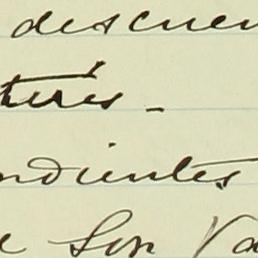 descuen
terés -
ndientes
e Son Va